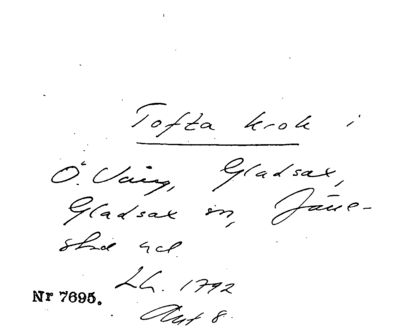 Tofta krok i
Ö. Vång, Gladsax,
Gladsax sn, Järre-
stad hd.
Lh. 1792
Akt 8.
Nr 7695.